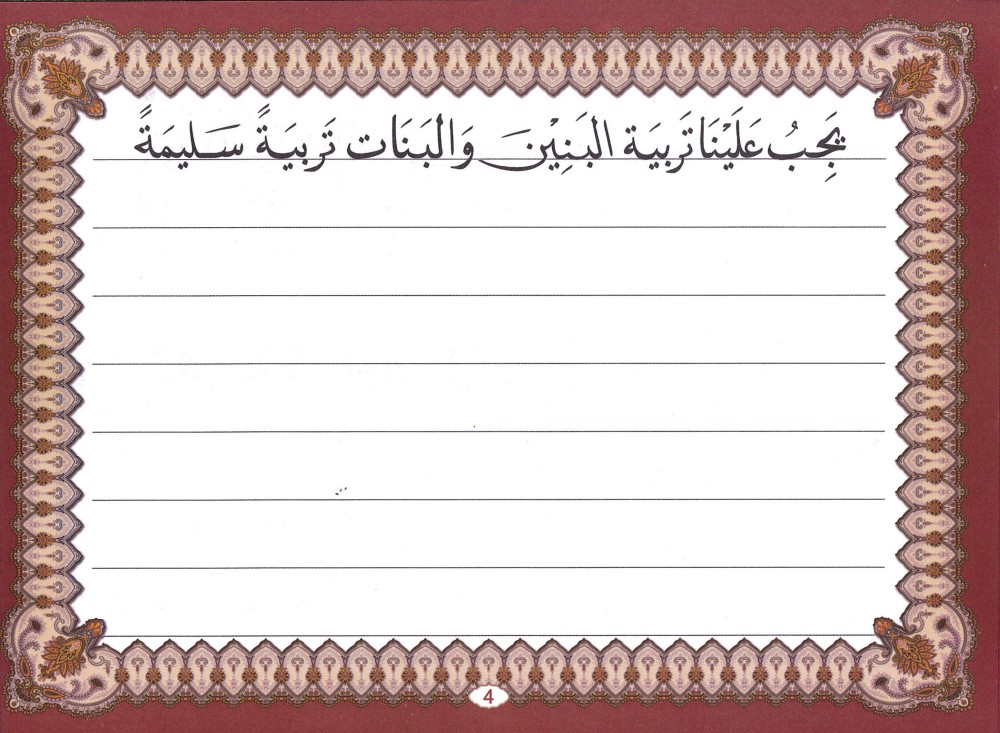 يَجِبُ عَلَيْنَا تَربيَة البَنِيْنَ وَالبَنَات تَربيَةً سَليمَةً
4